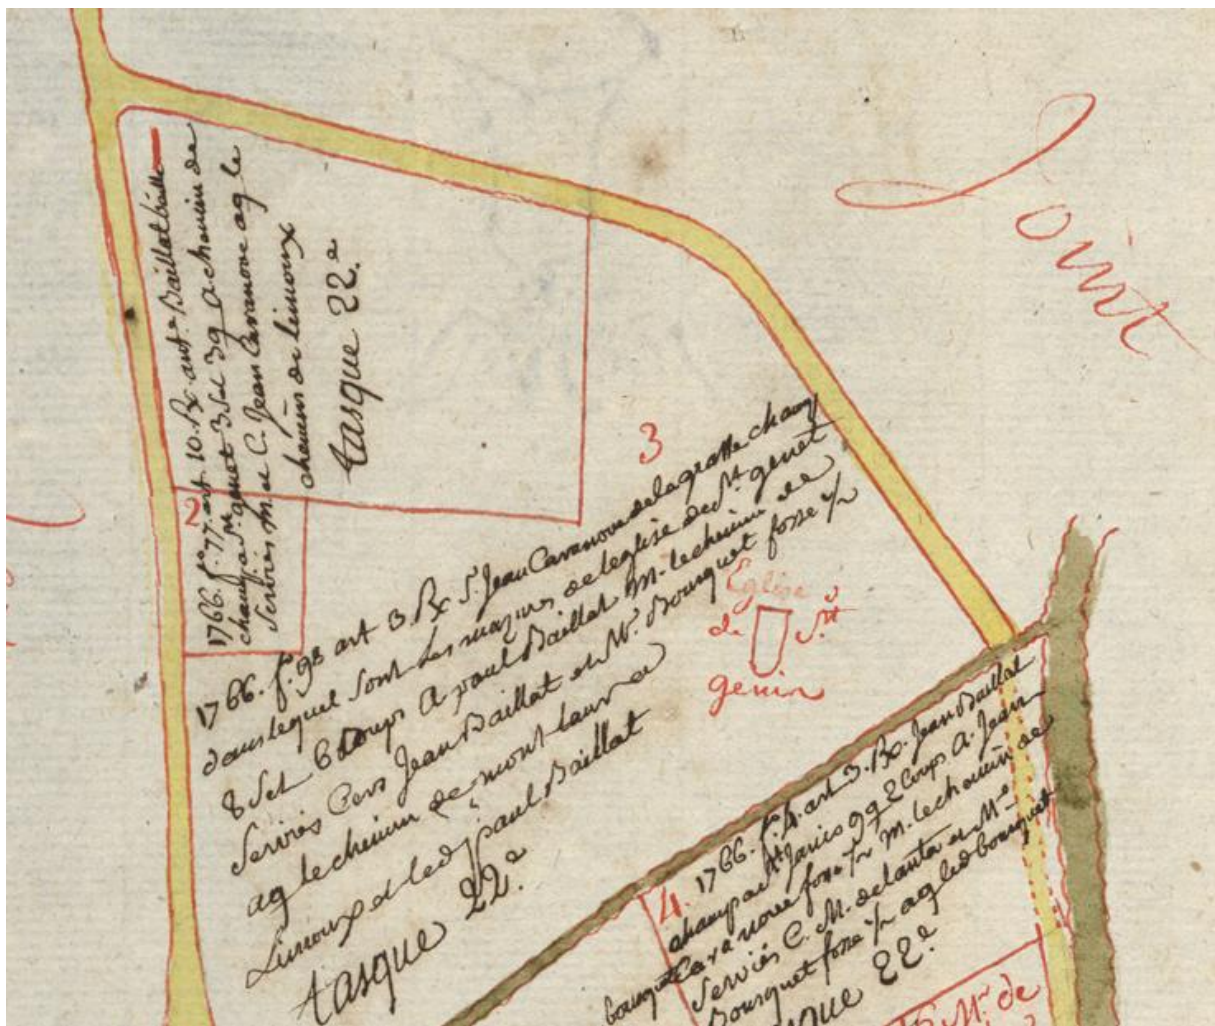 Joint
1766. f.° 77. art 10. Bx ant.e Baillat baille
champ a S.t genet 3 Set 3 q A chemin de
Serviès M. et C. Jean Cavanove ag le
chemin de limoux
tasque 22.e
2
3
1766. f.° 98 art 3 Bx S. Jean Cavanove de la grasse champ
dans lequel sont les mazures de leglise de S.t genet
8 Set 6 Coups A paul Baillat M. le chemin de
Serviès Cers Jean Baillat et M.r Bousquet fosse
ag le chemin de mont laur a
Limoux et led paul Baillat
tasque 22.e
Eglise
de S.t
genin
4. 1766. f.° 4. art 3. Bx. Jean Baillat
champ 9 q 2 Coups A. Jean
Cavanove fosse M. le chemin de
Serviès C. M. et M.e
Bousquet fosse ag led bousquet
22.e
M.r de